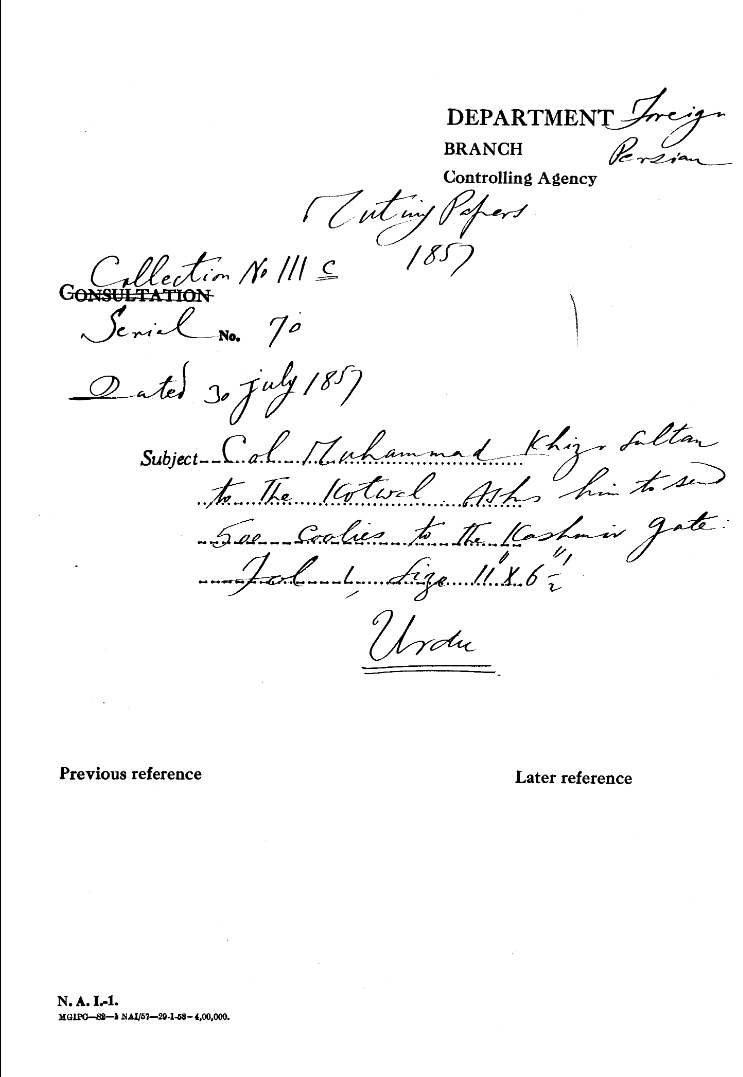 DEPARTMENT Foreign
BRANCH Persian
Controlling Agency
Mutiny Papers
1857
Collection No III C
CONSULTATION
Serial No. 70
Dated 30 July 1857
Subject Col Muhammad Khizr Sultan
to the Kotwal. Asks him to send
500 coolies to the Kashmir gate.
Fol 1, Size 11" X 6 1/2"
Urdu
Previous reference
Later reference
N. A. I.-1.
MGIPC—82—1 NAI/57—29-1-58—4,00,000.